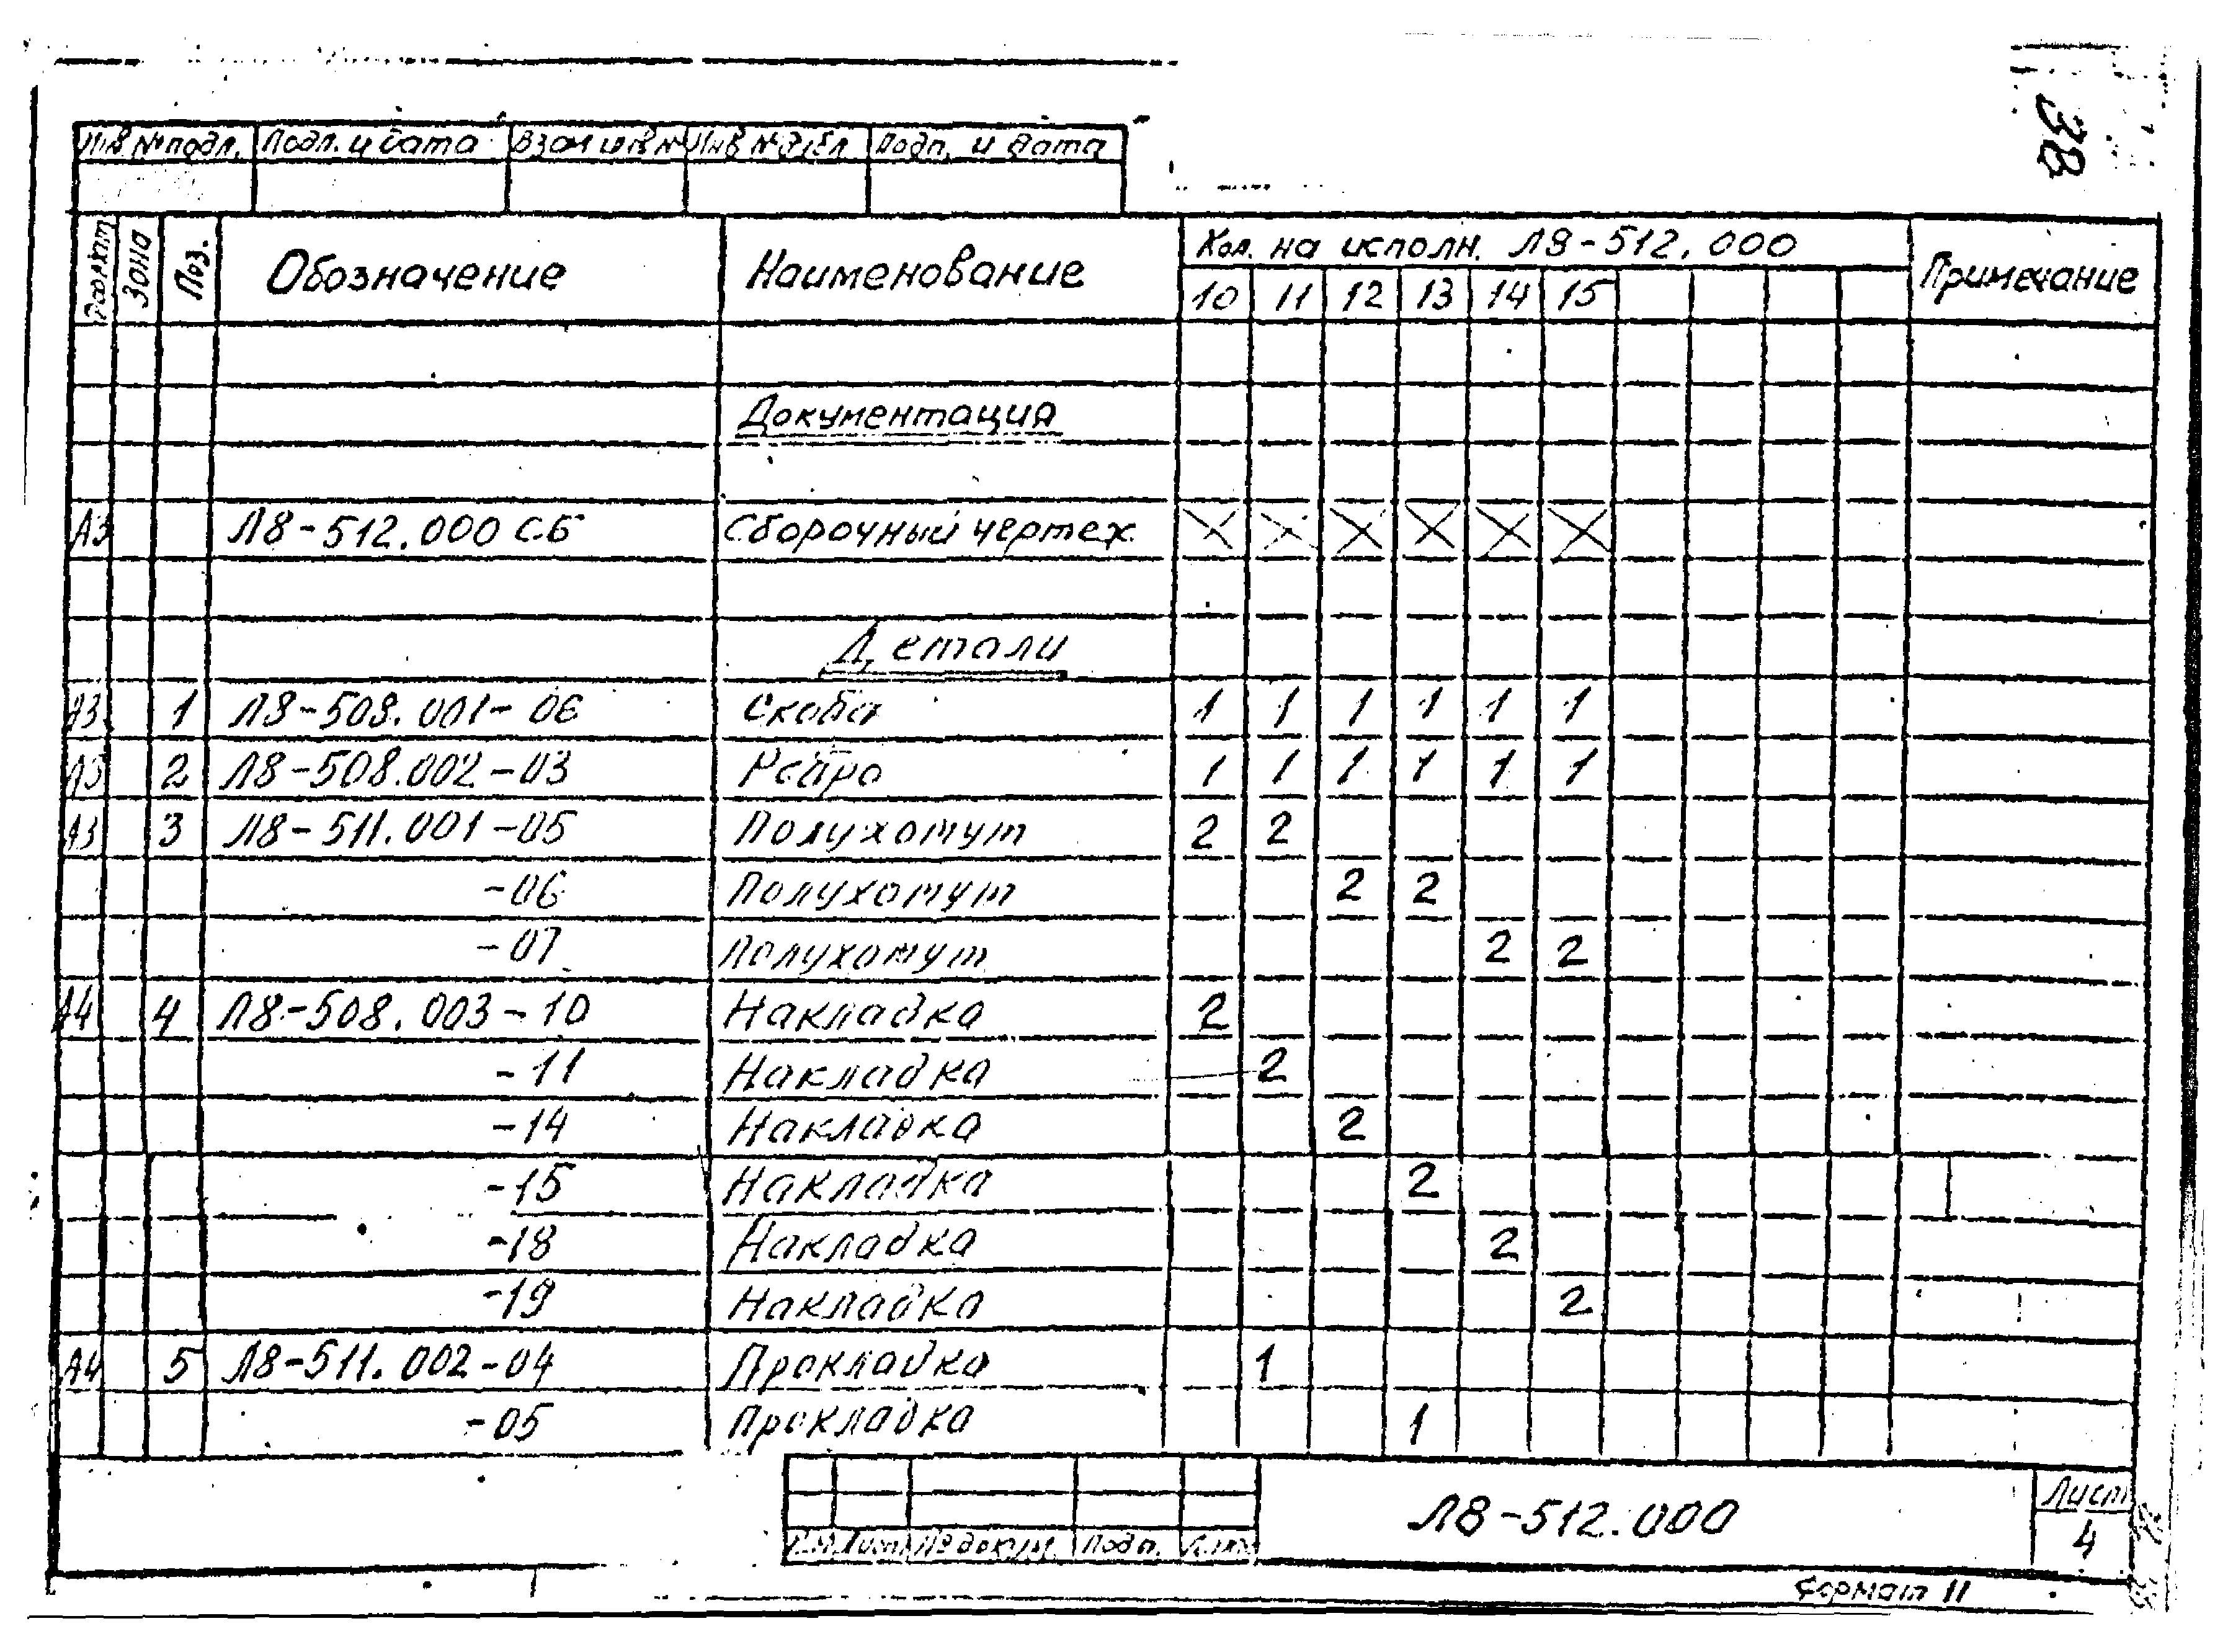 38
Инв № подл. Подп. и дата Взам инв № Инв № дубл Подп. и дата
Формат Зона Поз. Обозначение Наименование Кол. на исполн. Л8-512.000 Примечание
10 11 12 13 14 15
Документация
А3 Л8-512.000 СБ Сборочный чертеж
Детали
А3 1 Л8-508.001-06 Скоба 1 1 1 1 1 1
А3 2 Л8-508.002-03 Ребро 1 1 1 1 1 1
А3 3 Л8-511.001-05 Полухомут 2 2
-06 Полухомут 2 2
-07 Полухомут 2 2
А4 4 Л8-508.003-10 Накладка 2
-11 Накладка 2
-14 Накладка 2
-15 Накладка 2
-18 Накладка 2
-19 Накладка 2
А4 5 Л8-511.002-04 Прокладка 1
-05 Прокладка 1
Изм Лист № докум. Подп. Дата
Л8-512.000
Лист
4
Формат 11